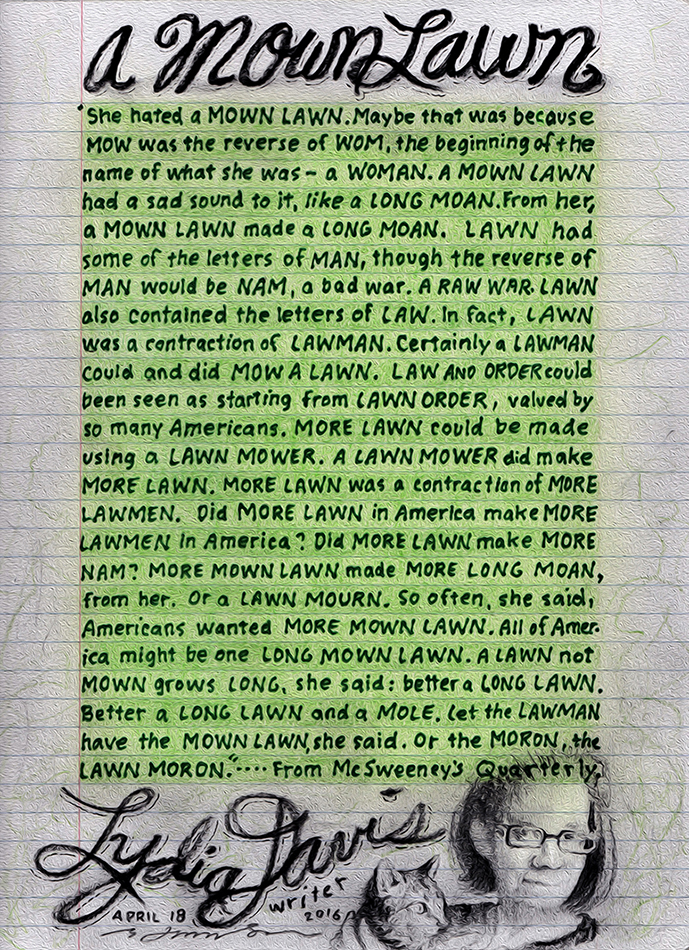 a Mown Lawn
"She hated a MOWN LAWN. Maybe that was because
MOW was the reverse of WOM, the beginning of the
name of what she was - a WOMAN. A MOWN LAWN
had a sad sound to it, like a LONG MOAN. From her,
a MOWN LAWN made a LONG MOAN. LAWN had
some of the letters of MAN, though the reverse of
MAN would be NAM, a bad war. A RAW WAR. LAWN
also contained the letters of LAW. In fact, LAWN
was a contraction of LAWMAN. Certainly a LAWMAN
could and did MOW A LAWN. LAW AND ORDER could
been seen as starting from LAWN ORDER, valued by
so many Americans. MORE LAWN could be made
using a LAWN MOWER. A LAWN MOWER did make
MORE LAWN. MORE LAWN was a contraction of MORE
LAWMEN. Did MORE LAWN in America make MORE
LAWMEN in America? Did MORE LAWN make MORE
NAM? MORE MOWN LAWN made MORE LONG MOAN,
from her. Or a LAWN MOURN. So often, she said,
Americans wanted MORE MOWN LAWN. All of Amer-
ica might be one LONG MOWN LAWN. A LAWN not
MOWN grows LONG, she said: better a LONG LAWN.
Better a LONG LAWN and a MOLE. Let the LAWMAN
have the MOWN LAWN, she said. Or the MORON, the
LAWN MORON." .... From McSweeney's Quarterly.
Lydia Davis
writer
APRIL 18 2016